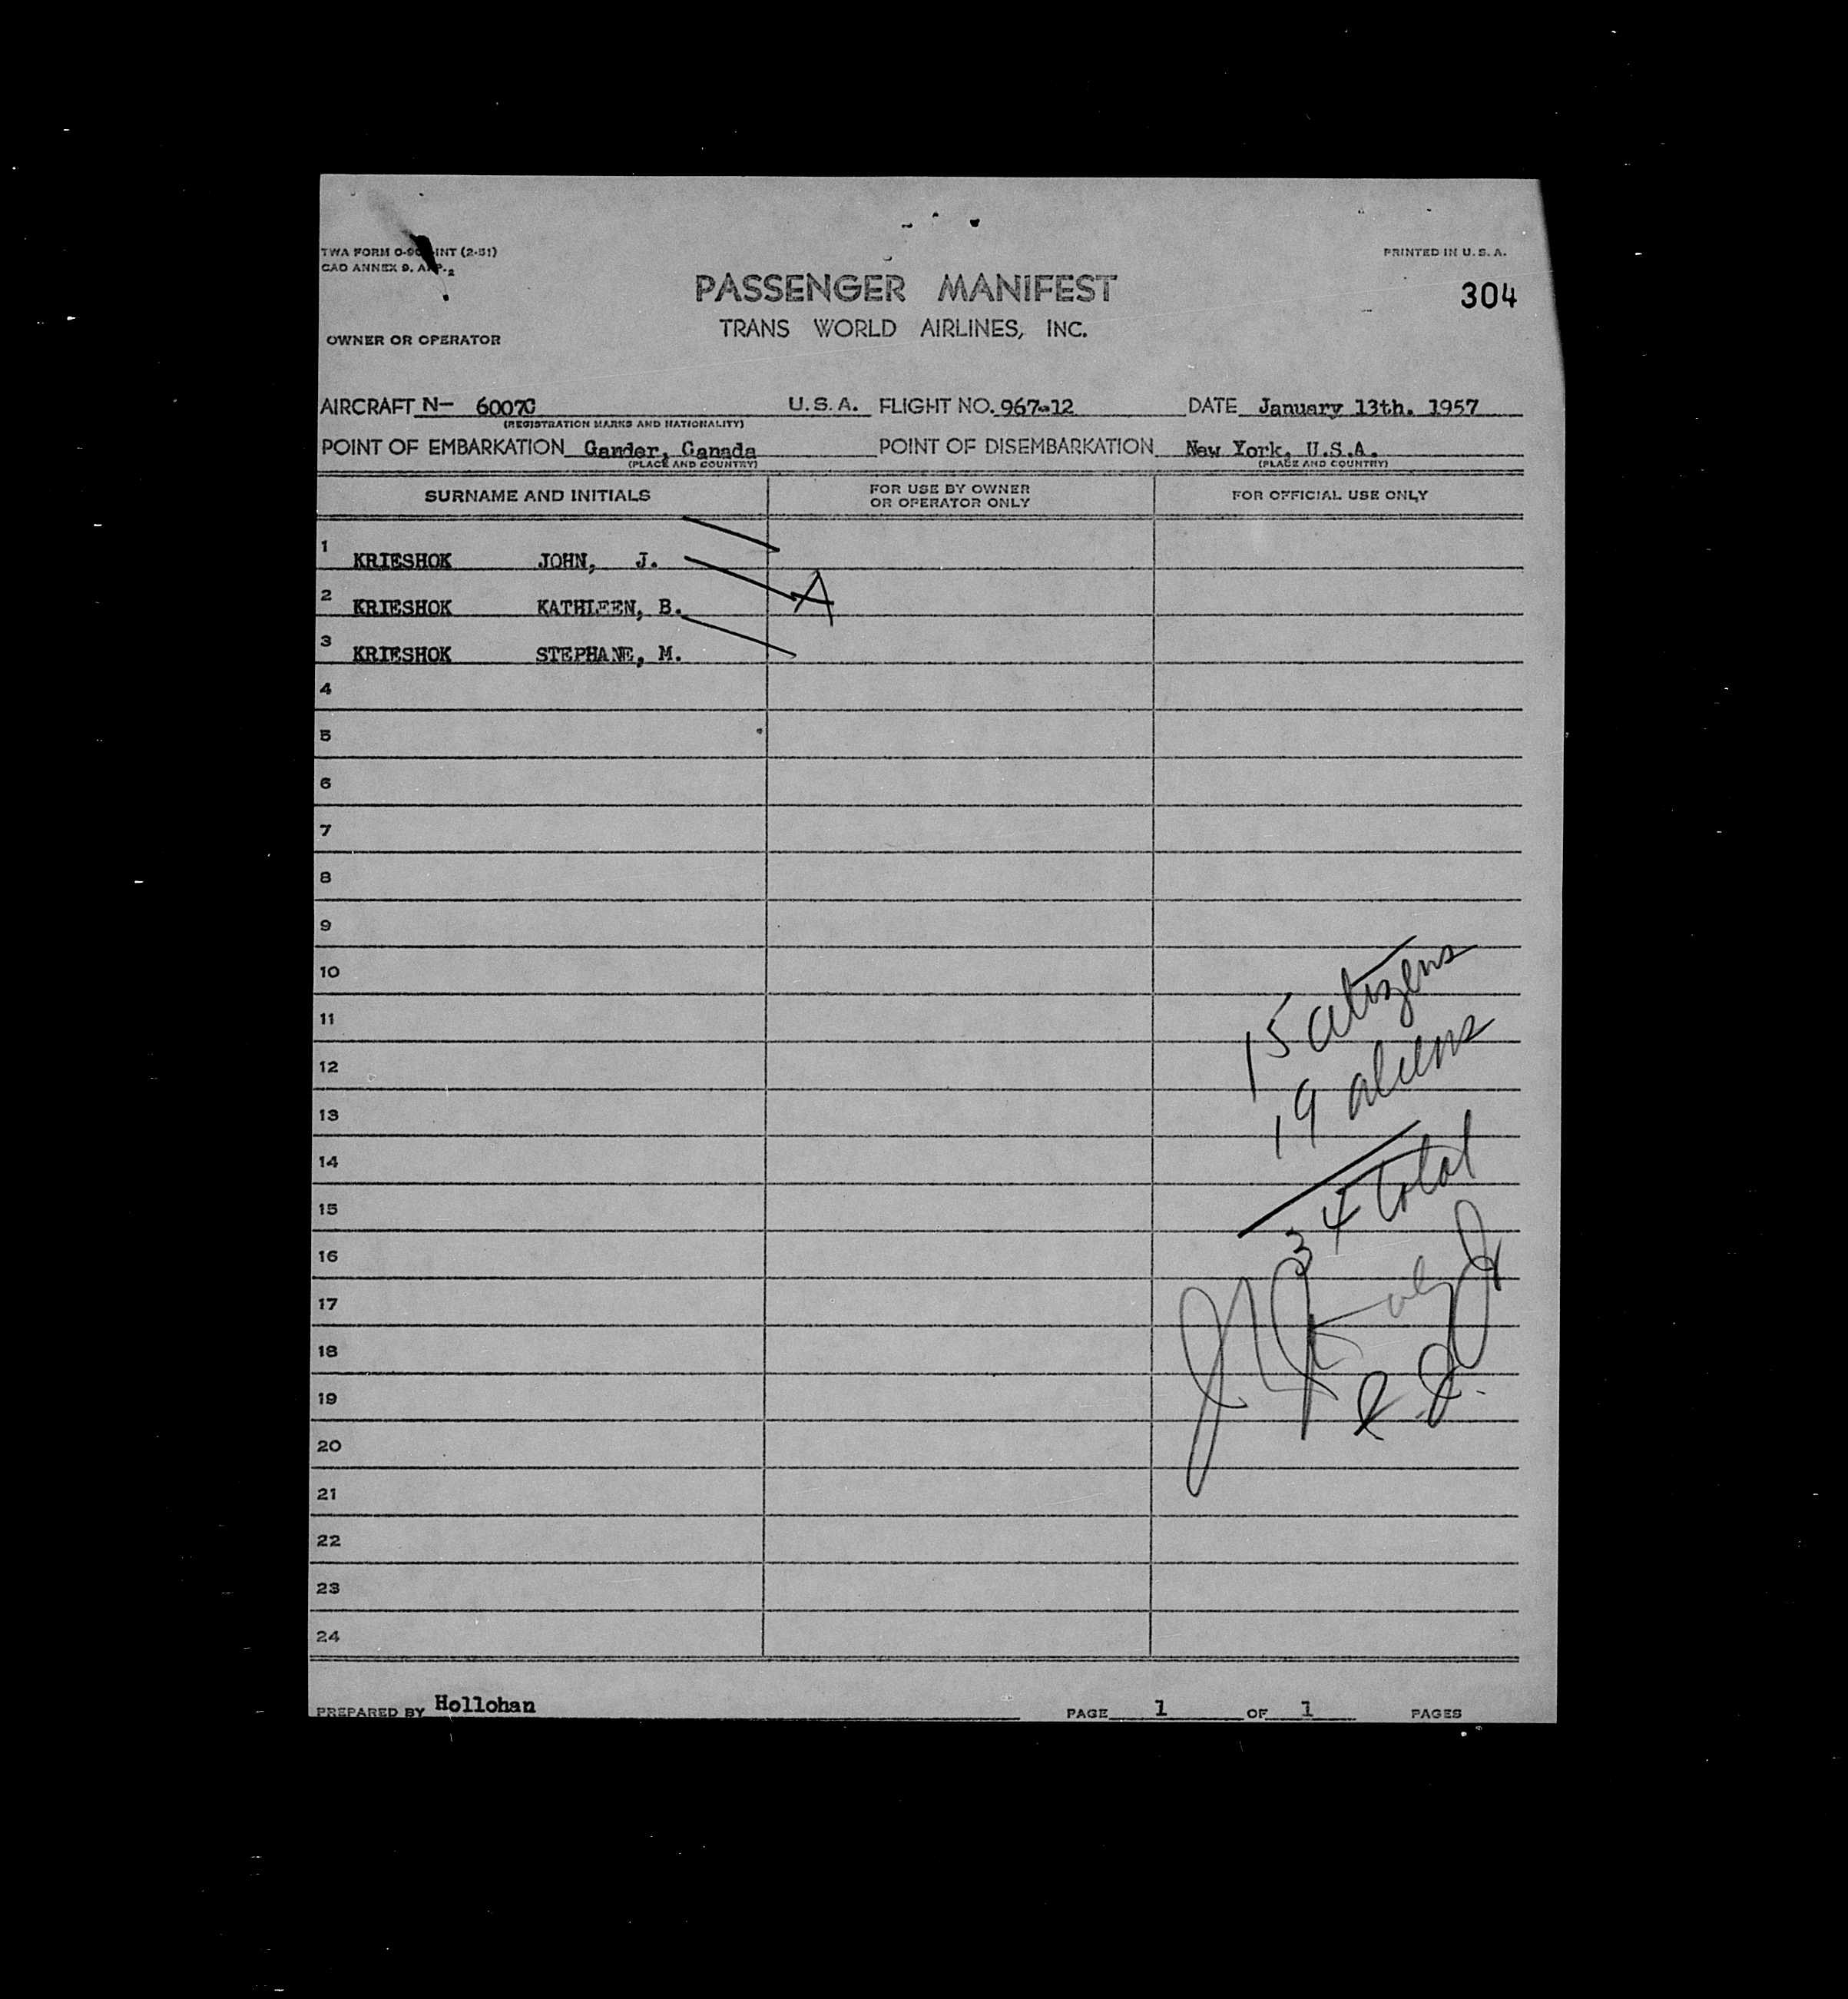 TWA FORM O-90 INT (2-51)
PRINTED IN U. S. A.
CAO ANNEX 9. APP. 2
PASSENGER MANIFEST
304
TRANS WORLD AIRLINES, INC.
OWNER OR OPERATOR
AIRCRAFT N- 6007C U. S. A. FLIGHT NO. 967-12 DATE January 13th. 1957
(REGISTRATION MARKS AND NATIONALITY)
POINT OF EMBARKATION Gander, Canada POINT OF DISEMBARKATION New York, U.S.A.
(PLACE AND COUNTRY) (PLACE AND COUNTRY)
SURNAME AND INITIALS FOR USE BY OWNER OR OPERATOR ONLY FOR OFFICIAL USE ONLY
1 KRIESHOK JOHN, J.
2 KRIESHOK KATHLEEN, B. A
3 KRIESHOK STEPHANE, M.
4
5
6
7
8
9
10
11
12
13
14
15
16
17
18
19
20
21
22
23
24
15 citizens
19 aliens
34 total
PREPARED BY Hollohan PAGE 1 OF 1 PAGES